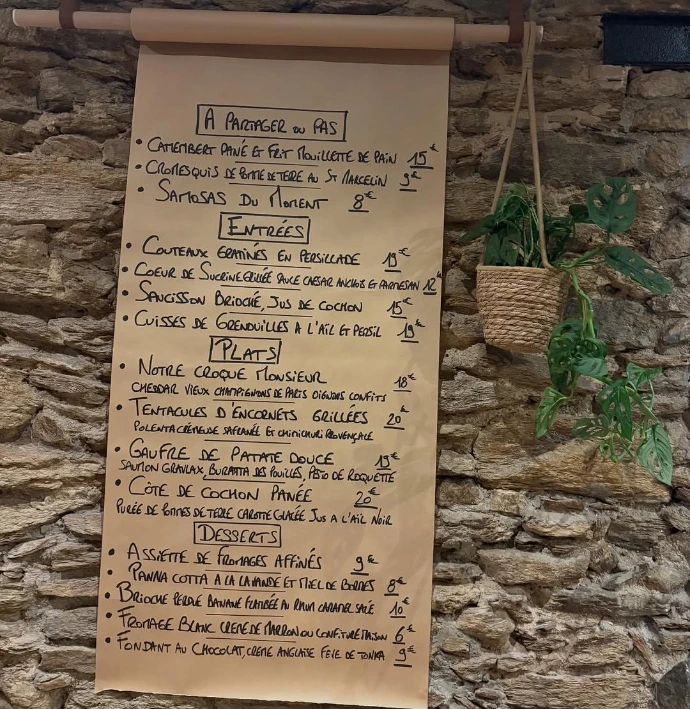 A PARTAGER OU PAS
• CAMEMBERT PANÉ ET FRIT MOUILLETTE DE PAIN 15€
• CROMESQUIS DE POMME DE TERRE AU ST MARCELIN 9€
• SAMOSAS DU MOMENT 8€
ENTRÉES
• COUTEAUX GRATINÉS EN PERSILLADE 19€
• COEUR DE SUCRINE GRILLÉE SAUCE CAESAR ANCHOIS ET PARMESAN 12€
• SAUCISSON BRIOCHÉ, JUS DE COCHON 15€
• CUISSES DE GRENOUILLES A L'AIL ET PERSIL 19€
PLATS
• NOTRE CROQUE MONSIEUR 18€
CHEDDAR VIEUX CHAMPIGNONS DE PARIS OIGNONS CONFITS
• TENTACULES D'ENCORNETS GRILLÉES 20€
POLENTA CRÉMEUSE SAFRANÉE ET CHIMICHURI PROVENÇALE
• GAUFRE DE PATATE DOUCE 19€
SAUMON GRAVLAX, BURATTA DES POUILLES, PESTO DE ROQUETTE
• CÔTE DE COCHON PANÉE 20€
PURÉE DE POMMES DE TERRE CAROTTE GLACÉE JUS A L'AIL NOIR
DESSERTS
• ASSIETTE DE FROMAGES AFFINÉS 9€
• PANNA COTTA A LA LAVANDE ET MIEL DE 8€
• BRIOCHE PERDUE BANANE FLAMBÉE AU RHUM CARAMEL SALÉ 10€
• FROMAGE BLANC CREME DE MARRON OU CONFITURE MAISON 6€
• FONDANT AU CHOCOLAT, CREME ANGLAISE FEVE DE TONKA 9€